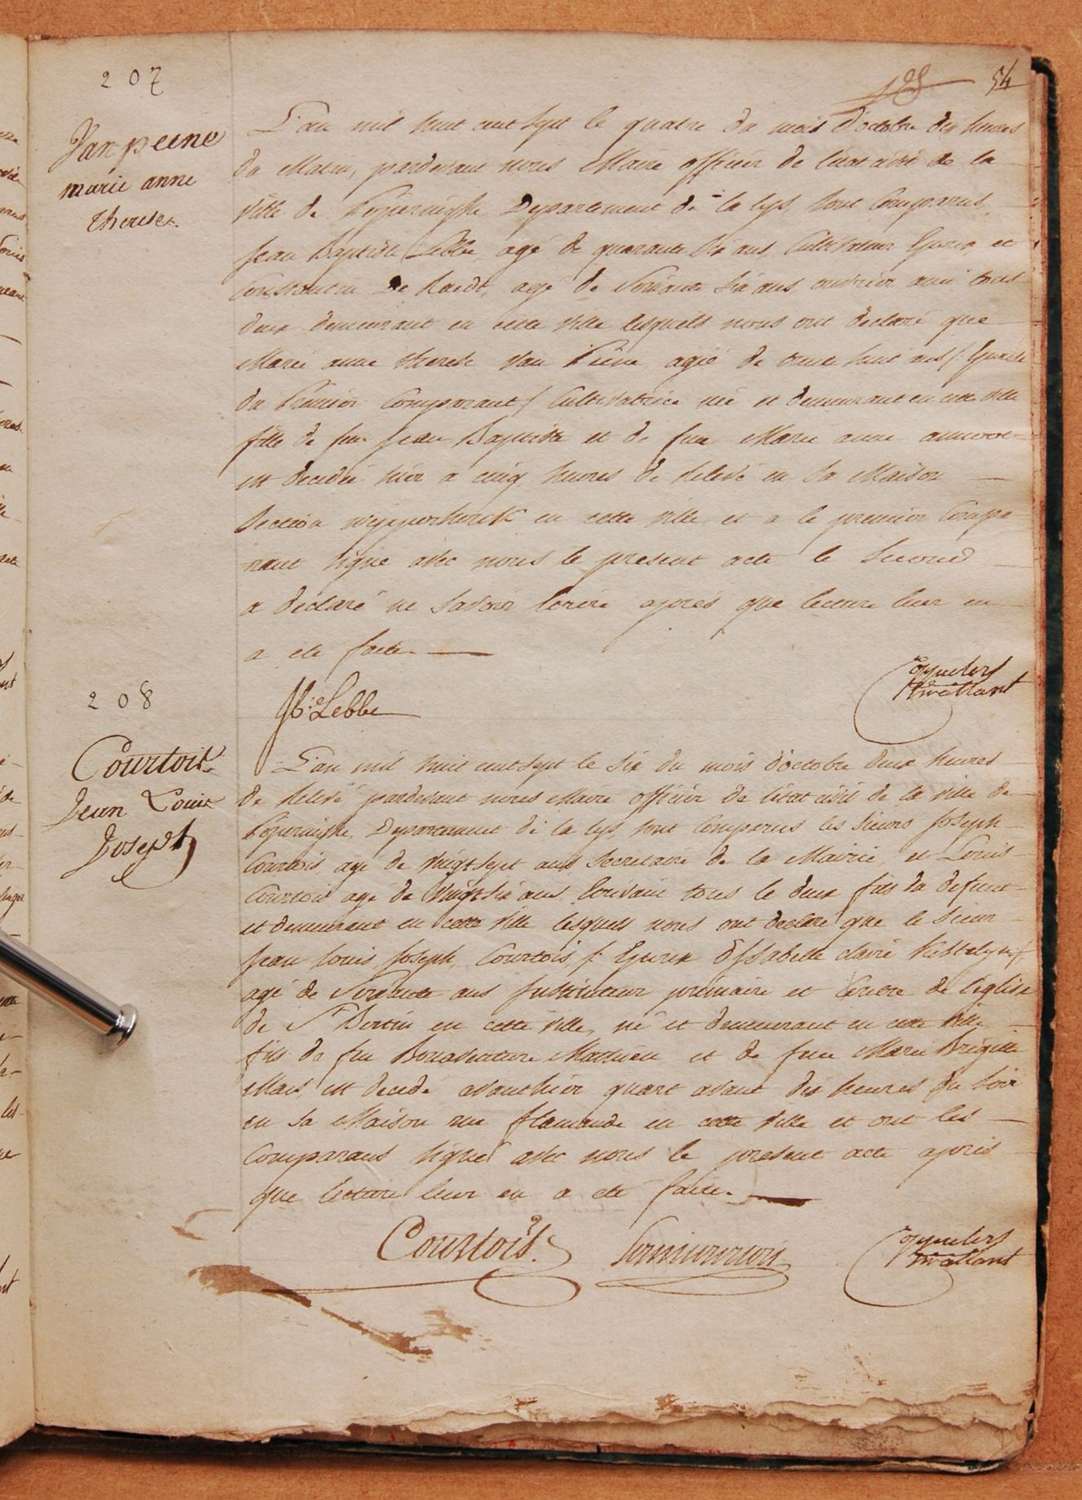 54
207
Van peene
marie anne
therese.
L'an mil huit cent sept le quatre du mois d'octobre dix heures
du Matin, pardevant nous Maire officier de l'etat civil de la
Ville de Poperinghe Departement de la Lys sont Comparus
Jean Baptiste Lebbe, agé de quarante six ans, Cultivateur Epoux et
Constantin De Raedt, agé de Soixante six ans ouvrier tous
deux demeurant en cette ville lesquels nous ont declaré que
Marie anne therese Van Piene agée de trente huit ans /: Epouse
du Premier Comparant / Cultivatrice née et demeurant en cette ville
fille de feu Jean Baptiste et de feue Marie anne
est decedée hier a cinq heures de relevé en Sa Maison
Section en cette ville et a le premier Compa
rant signé avec nous le present acte le Second
a declaré ne Savoir Ecrire après que lecture leur en
a eté faite
Jb: Lebbe
208
Courtois
Jean Louis
Joseph
L'an mil huit cent sept le six du mois d'octobre deux heures
de relevé pardevant nous Maire officier de l'etat civil de la ville de
Poperinghe, Departement de la Lys, sont Comparus les Sieurs Joseph
Courtois agé de vingt sept ans Secretaire de la Mairie, et Louis
Courtois agé de vingt six ans Ecrivain tous le deux fils du defunt
et demeurant en cette ville lesquels nous ont declaré que le Sieur
Jean Louis Joseph Courtois /: Epoux d'Isabelle claire
agé de Soixante ans Instituteur primaire et Clerc de l'Eglise
de St Bertin en cette ville, né et demeurant en cette ville
fils de feu Bonaventure Mathieu et de feue Marie Brigitte
Maes est decedé avanthier quart avant dix heures du soir
en sa Maison rue flamande en cette ville et ont les
Comparans signé avec nous le present acte après
que lecture leur en a eté faite.
Courtois